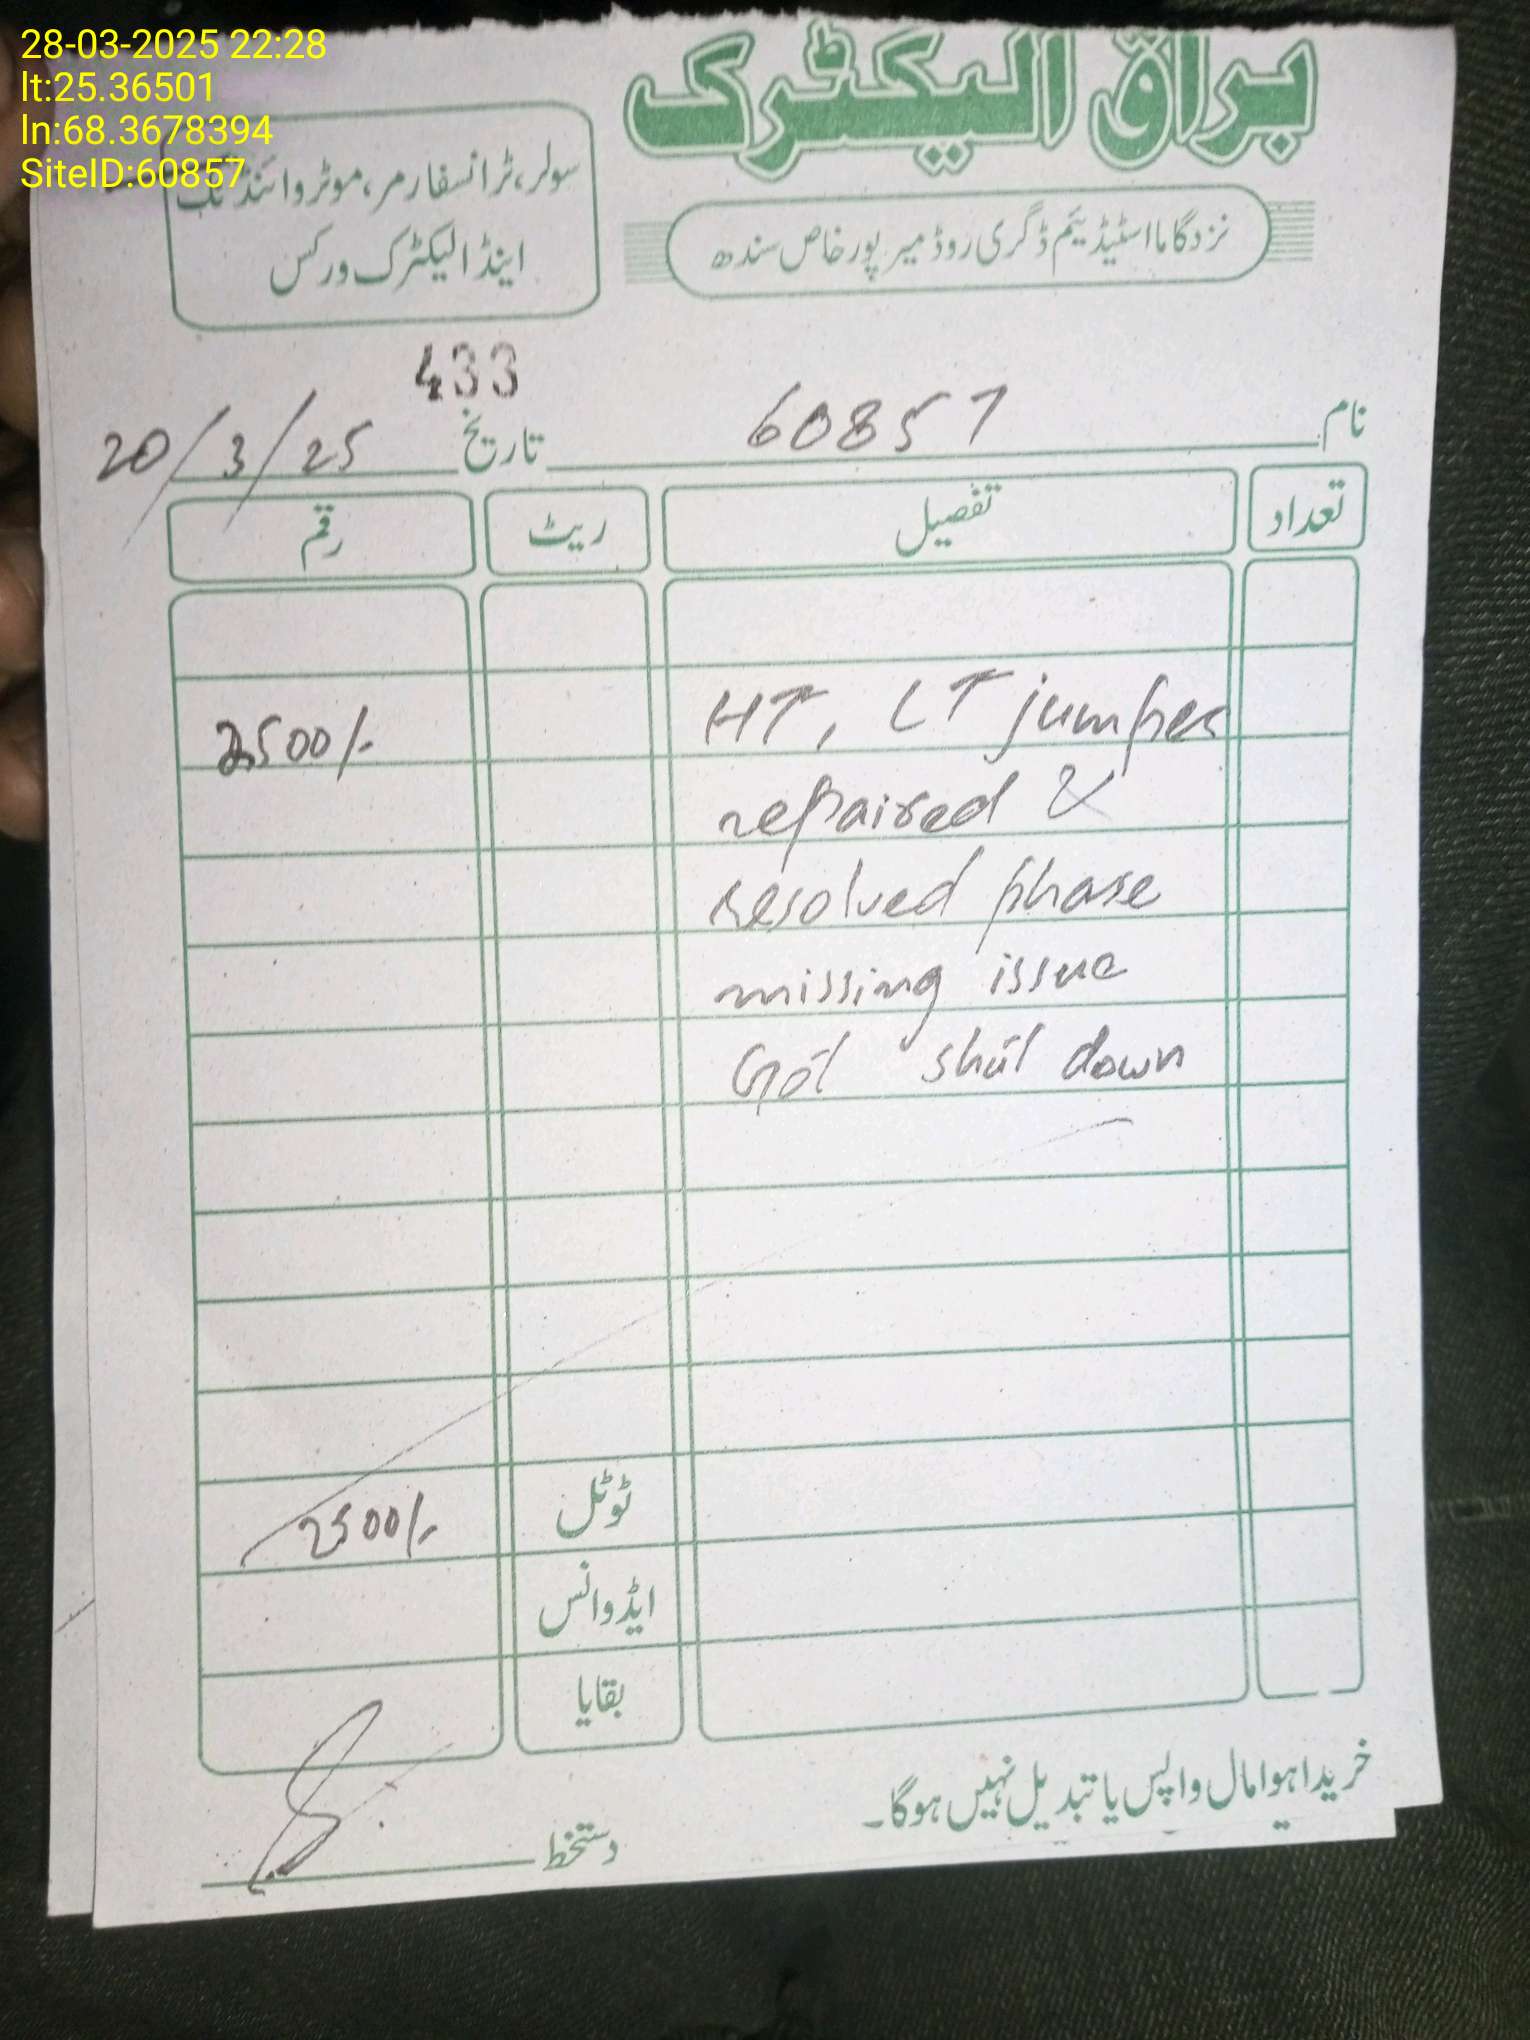 28-03-2025 22:28
lt:25.36501
ln:68.3678394
SiteID:60857
براق الیکٹرک
سولر، ٹرانسفارمر، موٹر وائنڈنگ
اینڈ الیکٹرک ورکس
نزد گاما اسٹیڈیئم ڈگری روڈ میرپورخاص سندھ
433
نام 60857 تاریخ 20/3/25
تعداد تفصیل ریٹ رقم
HT, LT jumper 2500/-
repaired &
resolved phase
missing issue
Got shut down
ٹوٹل 2500/-
ایڈوانس
بقایا
خریدا ہوا مال واپس یا تبدیل نہیں ہوگا۔
دستخط